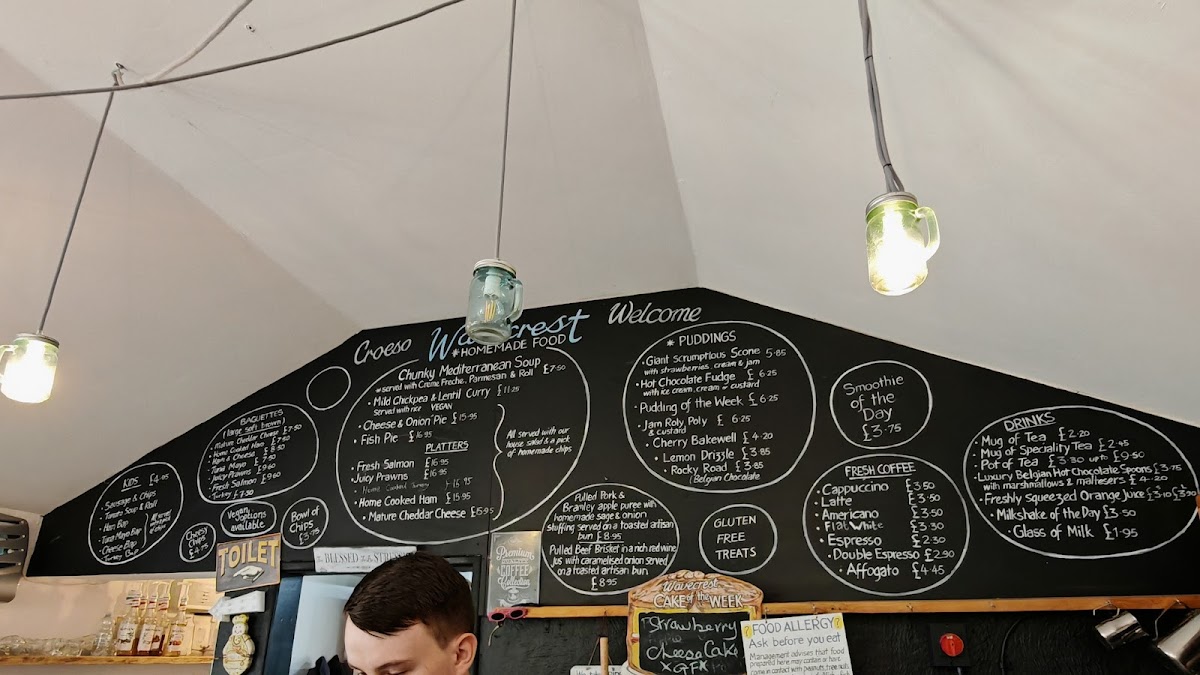 Croeso
Wavecrest
Welcome
*HOMEMADE FOOD
Chunky Mediterranean Soup £7.50
*served with Creme Freche, Parmesan & Roll
• Mild Chickpea & Lentil Curry £11.25
served with rice VEGAN
• Cheese & Onion Pie £15.95
• Fish Pie £16.95
PLATTERS
• Fresh Salmon £16.95
• Juicy Prawns £16.95
• Home Cooked £16.95
• Home Cooked Ham £15.95
• Mature Cheddar Cheese £15.95
All served with our
house salad & a pick
of homemade chips
BAGUETTES
(large soft brown)
Mature Cheddar Cheese £7.50
Home Cooked Ham £7.50
Ham & Cheese £8.50
Tuna Mayo £7.50
Juicy Prawns £9.60
Fresh Salmon £9.60
Turkey £7.50
KIDS £4.95
• Sausage & Chips
• Tomato Soup & Roll
• Ham Bap
• Tuna Mayo Bap
• Cheese Bap
Cheesy
Chips
£4.75
Vegan
options
available
Bowl of
Chips
£3.75
* PUDDINGS
• Giant Scrumptious Scone 5.85
with strawberries, cream & jam
• Hot Chocolate Fudge £6.25
with ice cream, cream or custard
• Pudding of the Week £6.25
• Jam Roly Poly £6.25
& custard
• Cherry Bakewell £4.20
• Lemon Drizzle £3.85
• Rocky Road £3.85
(Belgian Chocolate
Pulled Pork &
Bramley apple puree with
homemade sage & onion
stuffing served on a toasted artisan
bun £8.95
Pulled Beef Brisket in a rich red wine
jus with caramelised onion served
on a toasted artisan bun
£8.95
GLUTEN
FREE
TREATS
Smoothie
of the
Day
£3.75
FRESH COFFEE
• Cappuccino £3.50
• Latte £3.50
• Americano £3.30
• Flat White £3.30
• Espresso £2.30
• Double Espresso £2.90
• Affogato £4.45
DRINKS
• Mug of Tea £2.20
• Mug of Speciality Tea £2.45
• Pot of Tea £3.30 up to £9.50
• Luxury Belgian Hot Chocolate Spoons £3.75
with marshmallows & maltesers £4.20
• Freshly Squeezed Orange Juice £3.10
• Milkshake of the Day £3.50
• Glass of Milk £1.95
TOILET
BLESSED
Premium
COFFEE
Collection
Wavecrest
CAKE of the WEEK
Strawberry
Cheese Cake
*GF*
FOOD ALLERGY
Ask before you eat
Management advises that food
prepared here may contain or have
come in contact with peanuts, tree nuts,